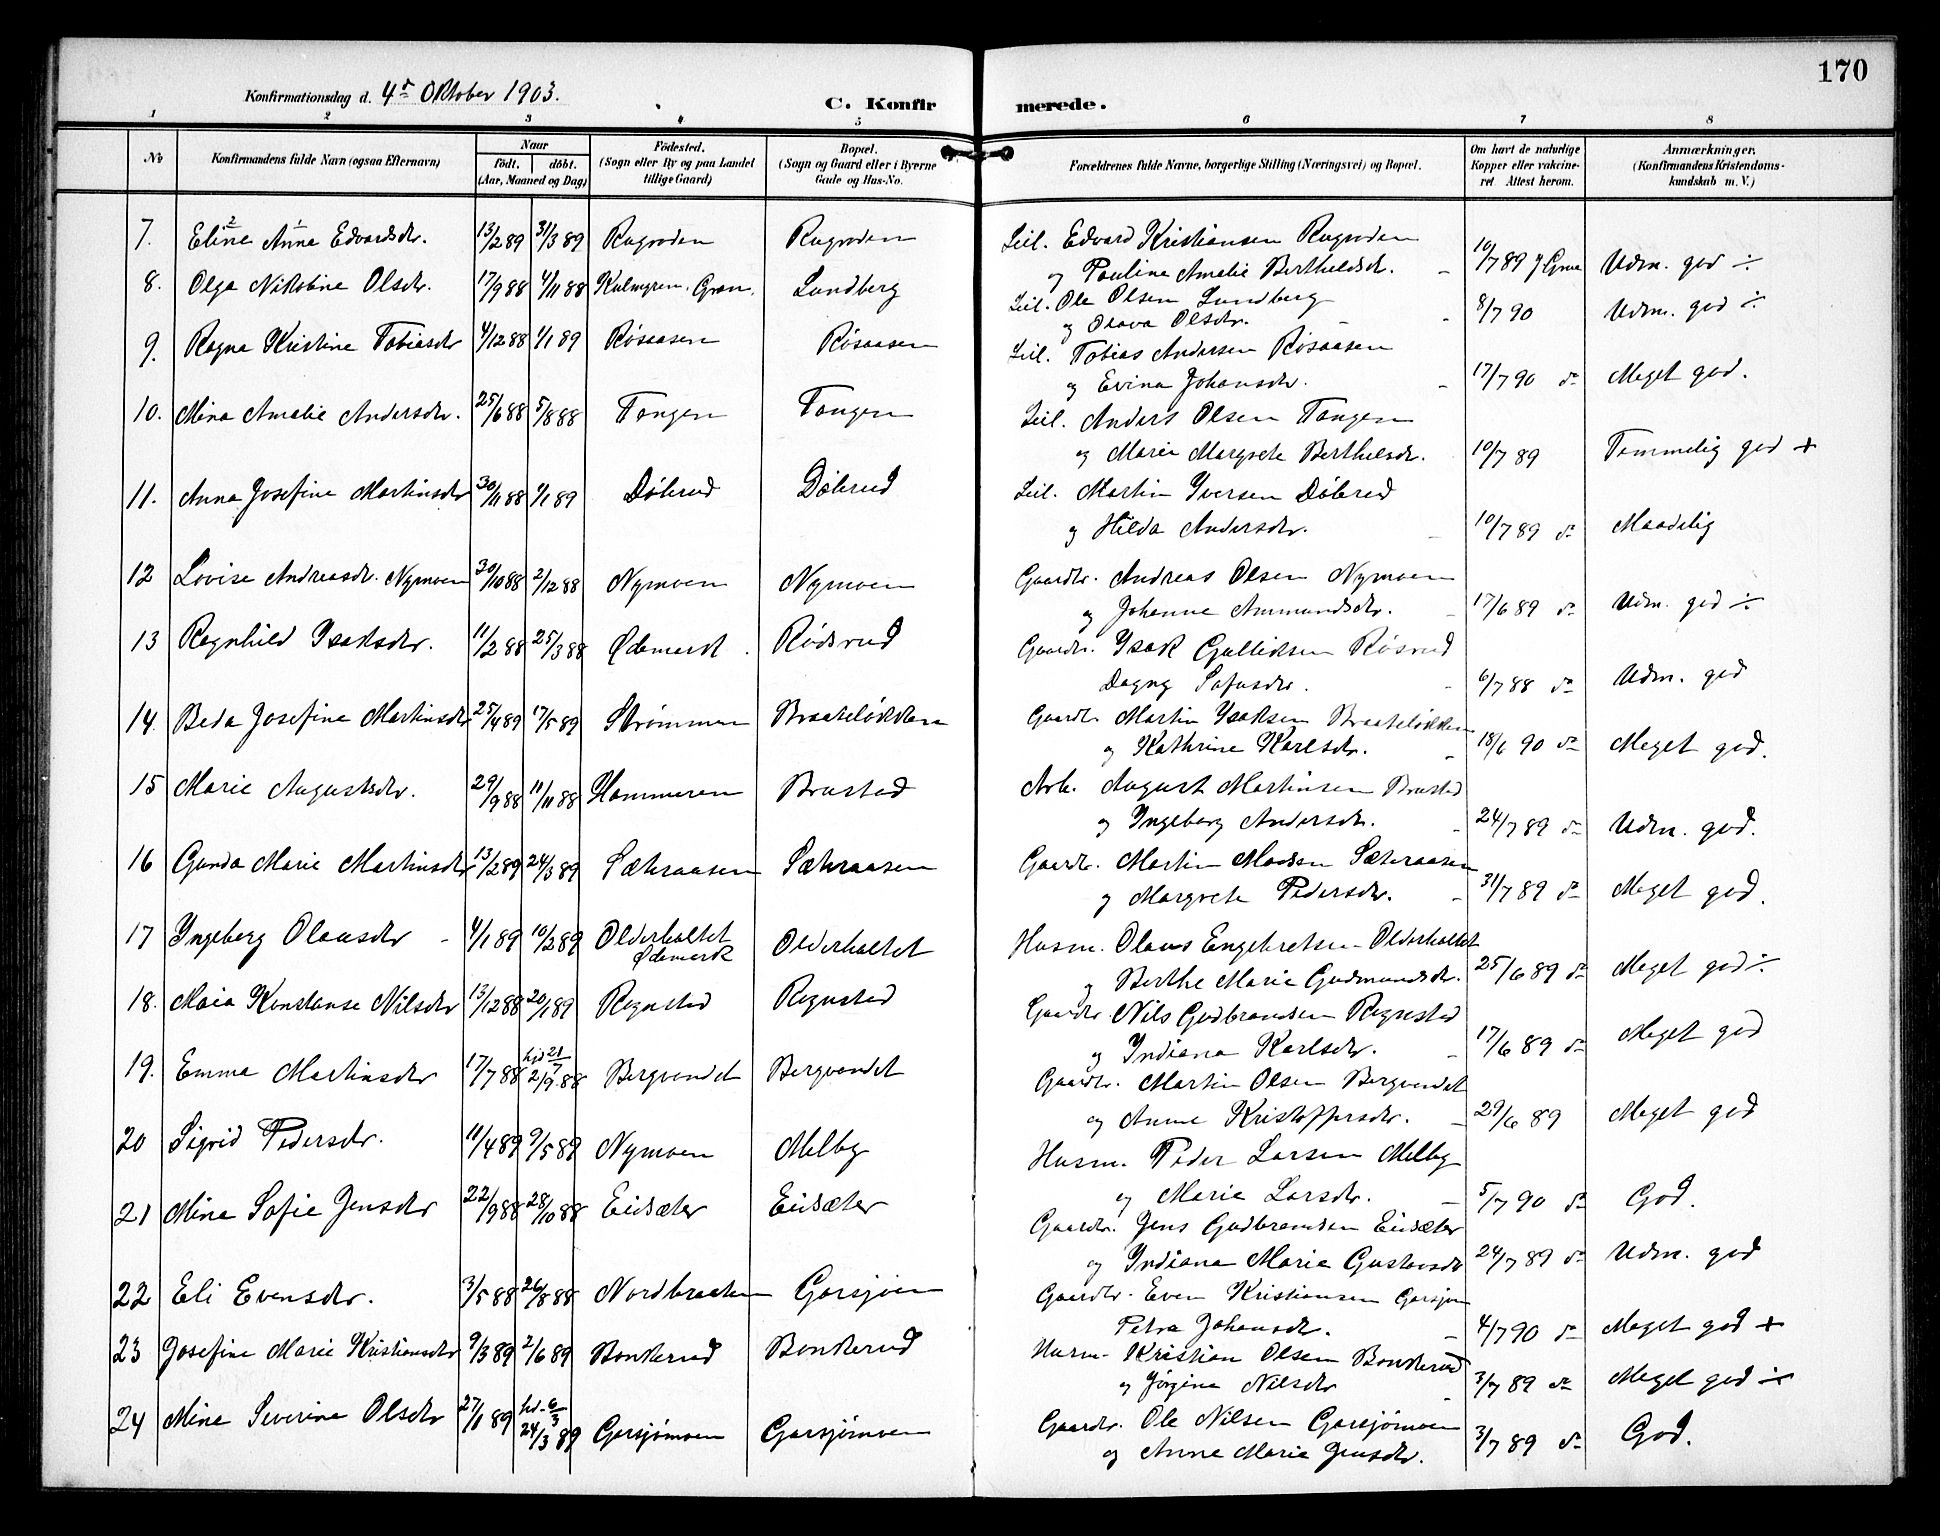 170
Konfirmationsdag d. 4de Oktober 1903.
C. Konfir merede.
1 2 3 4 5 6 7 8
No Konfirmandens fulde Navn (ogsaa Efternavn) Naar født. døbt. (Aar, Maaned og Dag) Fødested. (Sogn eller By og paa Landet tillige Gaard) Bopæl. (Sogn og Gaard eller i Byerne Gade og Hus-No. Forældrenes fulde Navne, borgerlige Stilling (Næringsvei) og Bopæl. Om havt de naturlige Kopper eller vakcineret. Attest herom. Anmærkninger. (Konfirmandens Kristendomskundskab m. V.)
7. Eline Anna Edvardsdr. 13/2 89 31/3 89 Rugroden Rugroden Leil. Edvard Kristiansen Rugroden
og Pauline Amalie Bertheldsdr. 10/7 89 J Grue Udm. god ÷
8. Olga Nikoline Olsdr. 17/9 88 4/11 88 Kulmyren, Gran. Lundberg Leil. Ole Olsen Lundberg
og Olava Olsdr. 8/7 90 Udm. god ÷
9. Ragna Kristine Tobiasdr 4/12 88 1/1 89 Røsaasen Røsaasen Leil. Tobias Andersen Røsaasen
og Evina Johansdr. 17/7 90 do Meget god.
10. Mina Amalie Andersdr. 25/6 88 5/8 88 Tangen Tangen Leil. Anders Olsen Tangen
og Marie Margrete Berthelsdr. 10/7 89 Temmelig god +
11. Anna Josefine Martinsdr 30/11 88 1/1 89 Døbrud Døbrud Leil. Martin Iversen Døbrud
og Hilda Andersdr. 10/7 89 do Maadelig
12 Lovise Andreasdr. Nymoen 30/10 88 2/12 88 Nymoen Nymoen Gaardbr. Andreas Olsen Nymoen
og Johanne Ammundsdr. 17/6 89 do Udm. god ÷
13 Ragnhild Isaksdr. 11/2 88 25/3 88 Ødemark. Rødsrud Gaardbr. Isak Gulliksen Røsrud
Dagny Sofusdr. 6/7 88 do Udm. god
14. Beda Josefine Martinsdr 25/4 89 17/5 89 Strømmen Braateløkken Gaardbr. Martin Isaksen Braateløkken
og Kathrine Karlsdr. 18/6 90 do Meget god.
15 Marie Augustsdr. 29/9 88 11/11 88 Hammeren Brustad Arb. August Martinsen Brustad
og Ingeborg Andersdr. 24/7 89 do Udm. god.
16 Gunda Marie Martinsdr 13/2 89 24/3 89 Sætraasen Sætraasen Gaardbr. Martin Madsen Sætraasen
og Margrete Pedersdr. 31/7 89 do Meget god.
17 Ingeborg Olausdr 4/1 89 10/2 89 Olderholtet Ødemark Olderholtet Husm. Olaus Engebretsen Olderholtet
og Berthe Marie Gudmundsdr. 25/6 89 do Meget god ÷
18. Maia Konstanse Nilsdr 13/12 88 20/1 89 Rognstad Rognstad Gaardbr. Nils Gudbrandsen Rognstad
og Indiana Karlsdr. 17/6 89 do Meget god
19. Emma Martinsdr 17/7 88 hjd 21/7 2/9 88 Bergvendet Bergvendet Gaardbr. Martin Olsen Bergvendet
og Anne Kristoffersdr. 29/6 89 Meget god
20 Sigrid Pedersdr. 11/4 89 9/5 89 Nymoen Melby Husm. Peder Larsen Melby
og Marie Larsdr. 5/7 90 do God.
21 Mina Sofie Jensdr 22/9 88 28/10 88 Eidsæter Eidsæter Gaardbr. Jens Gudbrandsen Eidsæter
og Indiana Marie Gustavsdr 24/7 89 do Udm. god
22 Eli Evensdr. 3/5 88 26/8 88 Nordbraaten Garsjøen Gaardbr. Even Kristiansen Garsjøen
Petra Johansdr. 4/7 90 do Meget god +
23 Josefine Marie Kristiansdr 9/3 89 2/6 89 Bonkerud Bonkerud Husm. Kristian Olsen Bonkerud
og Jørgine Nilsdr 3/7 89 do Meget god ÷
24 Mina Severine Olsdr 27/1 89 hd. 6/3 24/3 89 Garsjømoen Garsjømoen Gaardbr. Ole Nilsen Garsjømoen
og Anne Marie Jensdr. 3/7 89 do God.